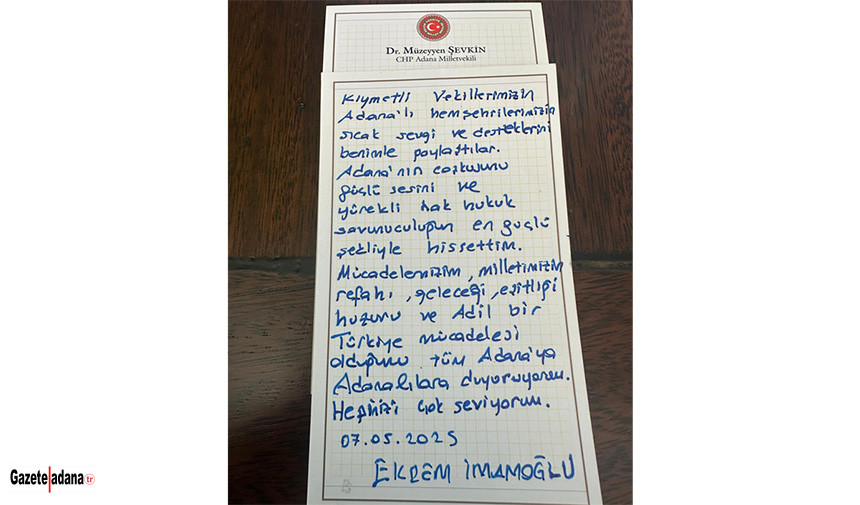 Dr. Müzeyyen ŞEVKİN
CHP Adana Milletvekili
Kıymetli Vekillerimizin
Adana'lı hemşehrilerimizin
sıcak sevgi ve desteklerini
benimle paylaştılar.
Adana'nın coşkusunu
güçlü sesini ve
yürekli hak hukuk
savunuculuğun en güçlü
şekliyle hissettim.
Mücadelemizim, milletimizin
refahı, geleceği, eşitliği
huzuru ve Adil bir
Türkiye mücadelesi
olduğunu tüm Adana'ya
Adanalılara duyuruyorum.
Hepinizi çok seviyorum.
07.05.2025
EKREM İMAMOĞLU
Gazeteadana tr